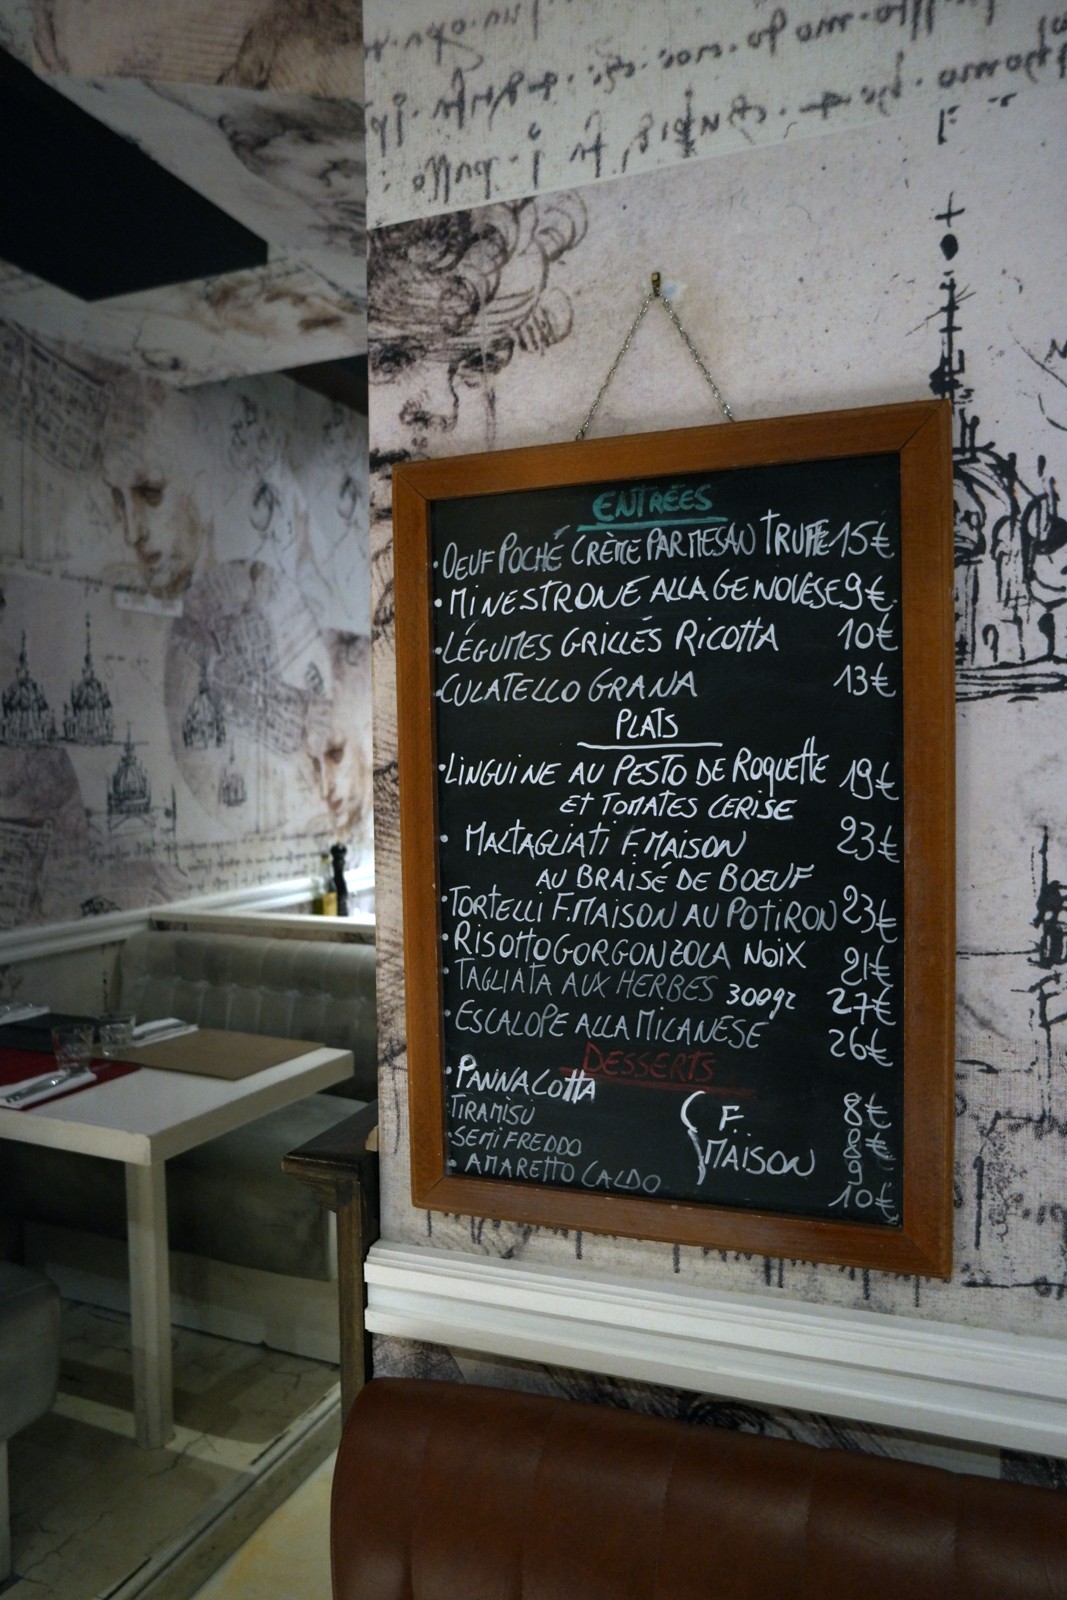 ENTRÉES
• OEUF POCHÉ CRÈME PARMESAN TRUFFE 15€
• MINESTRONE ALLA GENOVESE 9€
• LÉGUMES GRILLÉS RICOTTA 10€
• CULATELLO GRANA 13€
PLATS
• LINGUINE AU PESTO DE ROQUETTE 19€
ET TOMATES CERISE
• MALTAGLIATI F.MAISON 23€
AU BRAISÉ DE BOEUF
• TORTELLI F.MAISON AU POTIRON 23€
• RISOTTO GORGONZOLA NOIX 21€
• TAGLIATA AUX HERBES 300gr 27€
• ESCALOPE ALLA MILANESE 26€
DESSERTS
• PANNACOTTA 8€
• TIRAMISU F. 8€
• SEMIFREDDO MAISON 9
• AMARETTO CALDO 10€